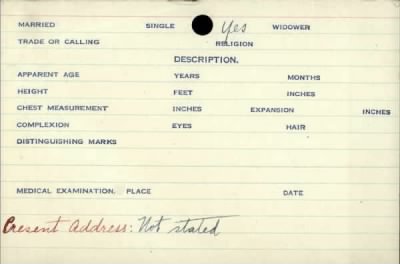 MARRIED SINGLE Yes WIDOWER
TRADE OR CALLING RELIGION
DESCRIPTION.
APPARENT AGE YEARS MONTHS
HEIGHT FEET INCHES
CHEST MEASUREMENT INCHES EXPANSION INCHES
COMPLEXION EYES HAIR
DISTINGUISHING MARKS
MEDICAL EXAMINATION. PLACE DATE
Present Address: Not stated